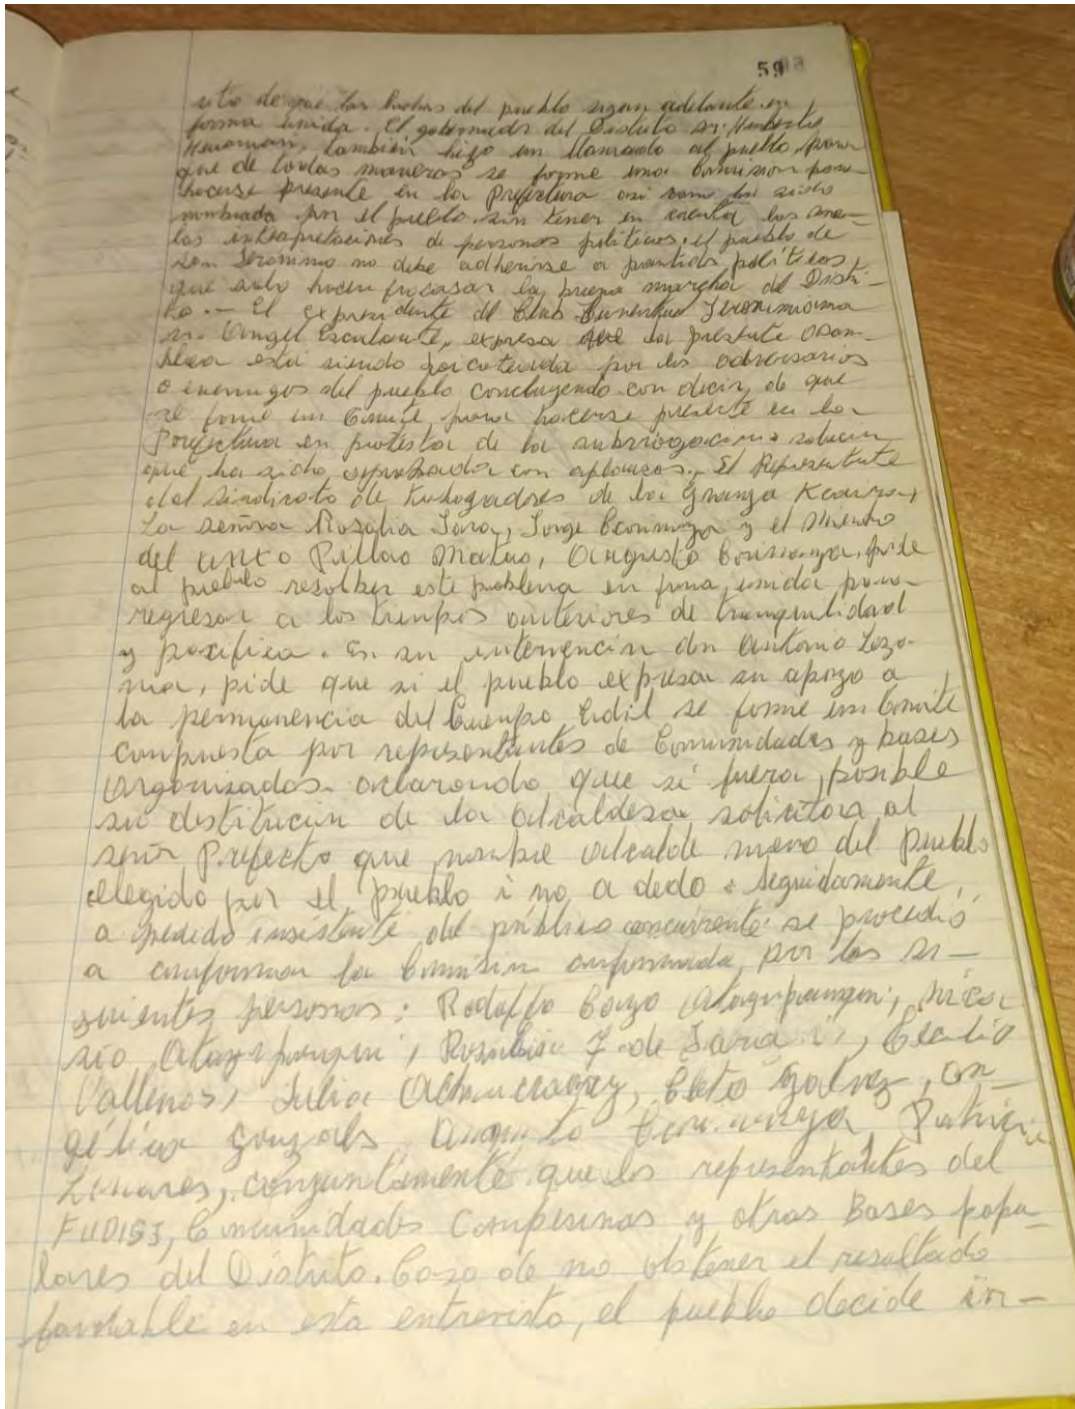 59
sito de que las luchas del pueblo sigan adelante en
forma unida. El gobernador del Distrito sr. Humberto
Huaman, también hizo un llamado al pueblo, para
que de todas maneras se forme una Comision para
hacerse presente en la Prefectura asi como ha sido
nombrada por el pueblo sin tener en cuenta las ma-
las interpretaciones de personas politicas, el pueblo de
San Jeronimo no debe adherirse a partidos politicos,
que solo hacen fracasar la buena marcha del Distri-
to. - El expresidente del Club Jeronimiano
sr. Angel Escalante, expresa que la presente asam-
blea está siendo por los adversarios
o enemigos del pueblo concluyendo con decir, de que
se forme un Comité para hacerse presente en la
Prefectura en protesta de la subrrogacion
que ha sido aprobada con aplausos. El Representte
del Sindicato de trabajadores de la Granja Kcayra,
La señora Rosalia Jara, Jorge y el
del Anexo Pillao Matao, Augusto pide
al pueblo resolber este problema en forma unida para
regresar a los tiempos anteriores de tranquilidad
y pacifica. En su intervención don Antonio Loza-
na, pide que si el pueblo expresa su apoyo a
la permanencia del Cuerpo Edil se forme un Comite
compuesta por representantes de Comunidades y bases
organizadas aclarando que si fuera posible
su destitución de la alcaldesa solicitara al
señor Prefecto que nombre alcalde nuevo del pueblo
elegido por el pueblo i no a dedo. Seguidamente,
a pedido insistente del público concurrente se procedió
a conformar la Comisión conformada por las si-
guientes personas: Rodolfo
de Jara
Vallenas, Julia Galvez, An-
gélica Augusto
Linares, conjuntamente que los representantes del
FUDISJ, Comunidades Campesinas y otras Bases popu-
lares del Distrito. Caso de no obtener el resultado
favorable en esta entrevista, el pueblo decide in-